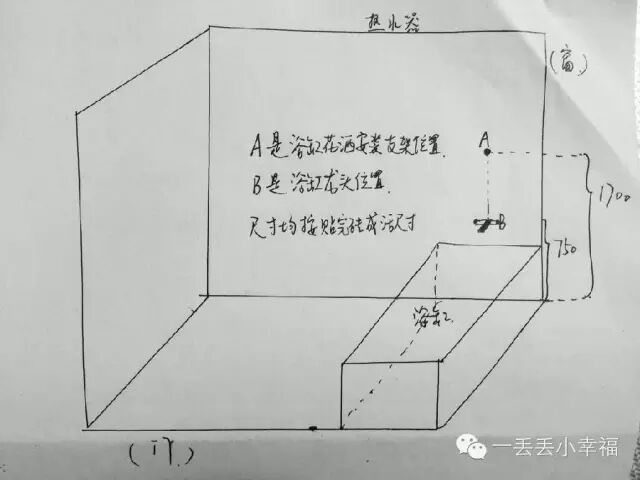 热水器
(窗)
A是浴缸花洒安装支架位置.
B是浴缸龙头位置.
尺寸均按贴完砖成活尺寸
A
B
1700
750
浴缸
(门)
一丢丢小幸福